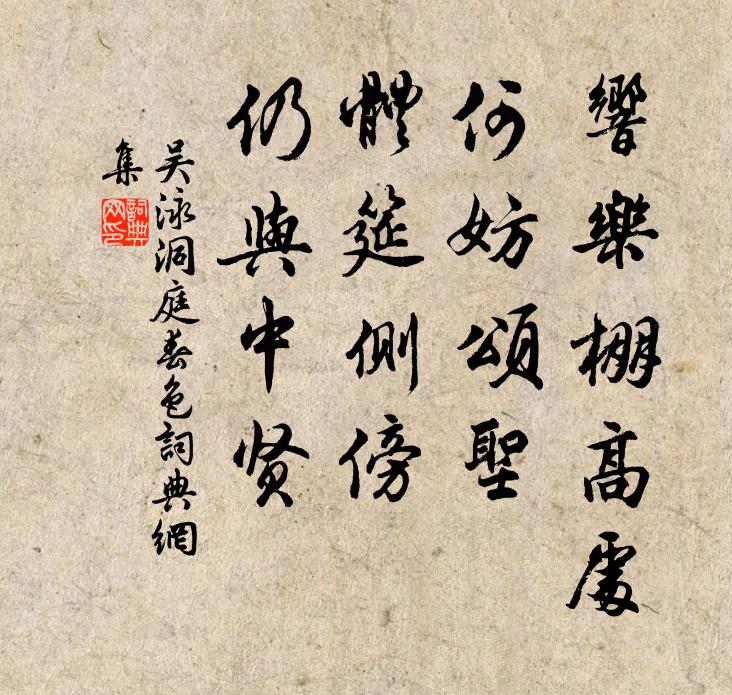 響樂棚高處
何妨頌聖
體筵側傍
仍與中贤
吴泳洞庭春色詞典網
集
詞典
网印